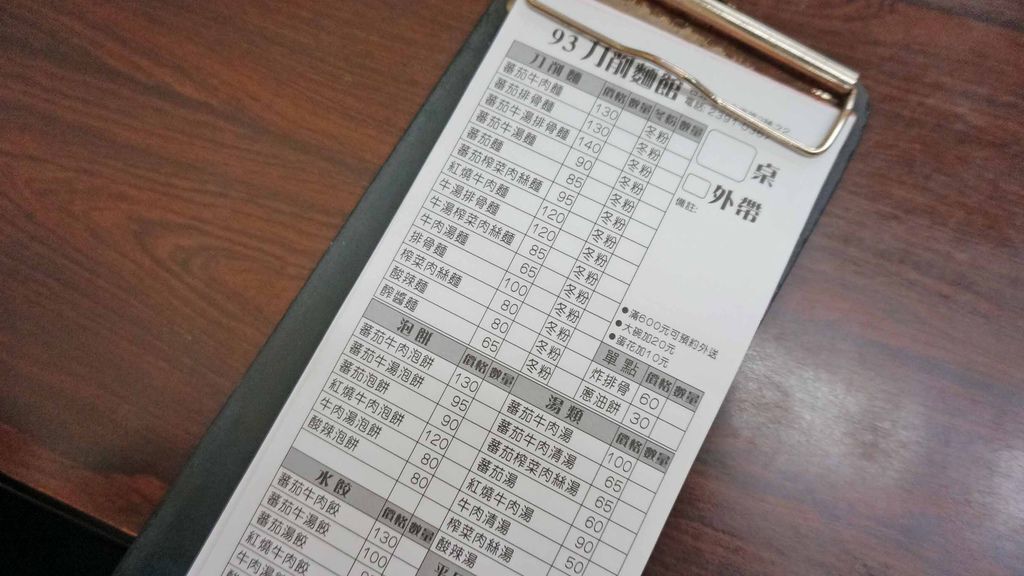 93 刀削麵館
刀削麵 價格 數量 冬粉 數量
蕃茄牛肉麵 130 冬粉
蕃茄排骨麵 130 冬粉
蕃茄牛湯排骨麵 140 冬粉
蕃茄牛湯麵 90 冬粉
蕃茄麵 85 冬粉
蕃茄榨菜肉絲麵 95 冬粉
紅燒牛肉麵 120 冬粉
牛湯排骨麵 120 冬粉
牛湯榨菜肉絲麵 85 冬粉
牛肉湯麵 65 冬粉
排骨麵 100 冬粉
榨菜肉絲麵 80 冬粉
酸辣麵 80 冬粉
醡醬麵 65 冬粉
桌
外帶
備註:
●滿600元可預約外送
●大碗加20元
●蛋花加10元
單點 價格 數量
炸排骨 60
蔥油餅 30
泡餅 價格 數量
蕃茄牛肉泡餅 130
蕃茄牛湯泡餅 95
蕃茄泡餅 90
紅燒牛肉泡餅 120
牛肉湯泡餅 80
酸辣泡餅 80
湯類 價格 數量
蕃茄牛肉湯 100
蕃茄牛肉清湯 65
蕃茄榨菜肉絲湯 65
蕃茄湯 60
紅燒牛肉湯 90
牛肉清湯 50
榨菜肉絲湯
酸辣湯
水餃 價格 數量
蕃茄牛肉餃 130
蕃茄牛湯餃 100
蕃茄湯餃
紅燒牛肉餃
牛肉湯餃